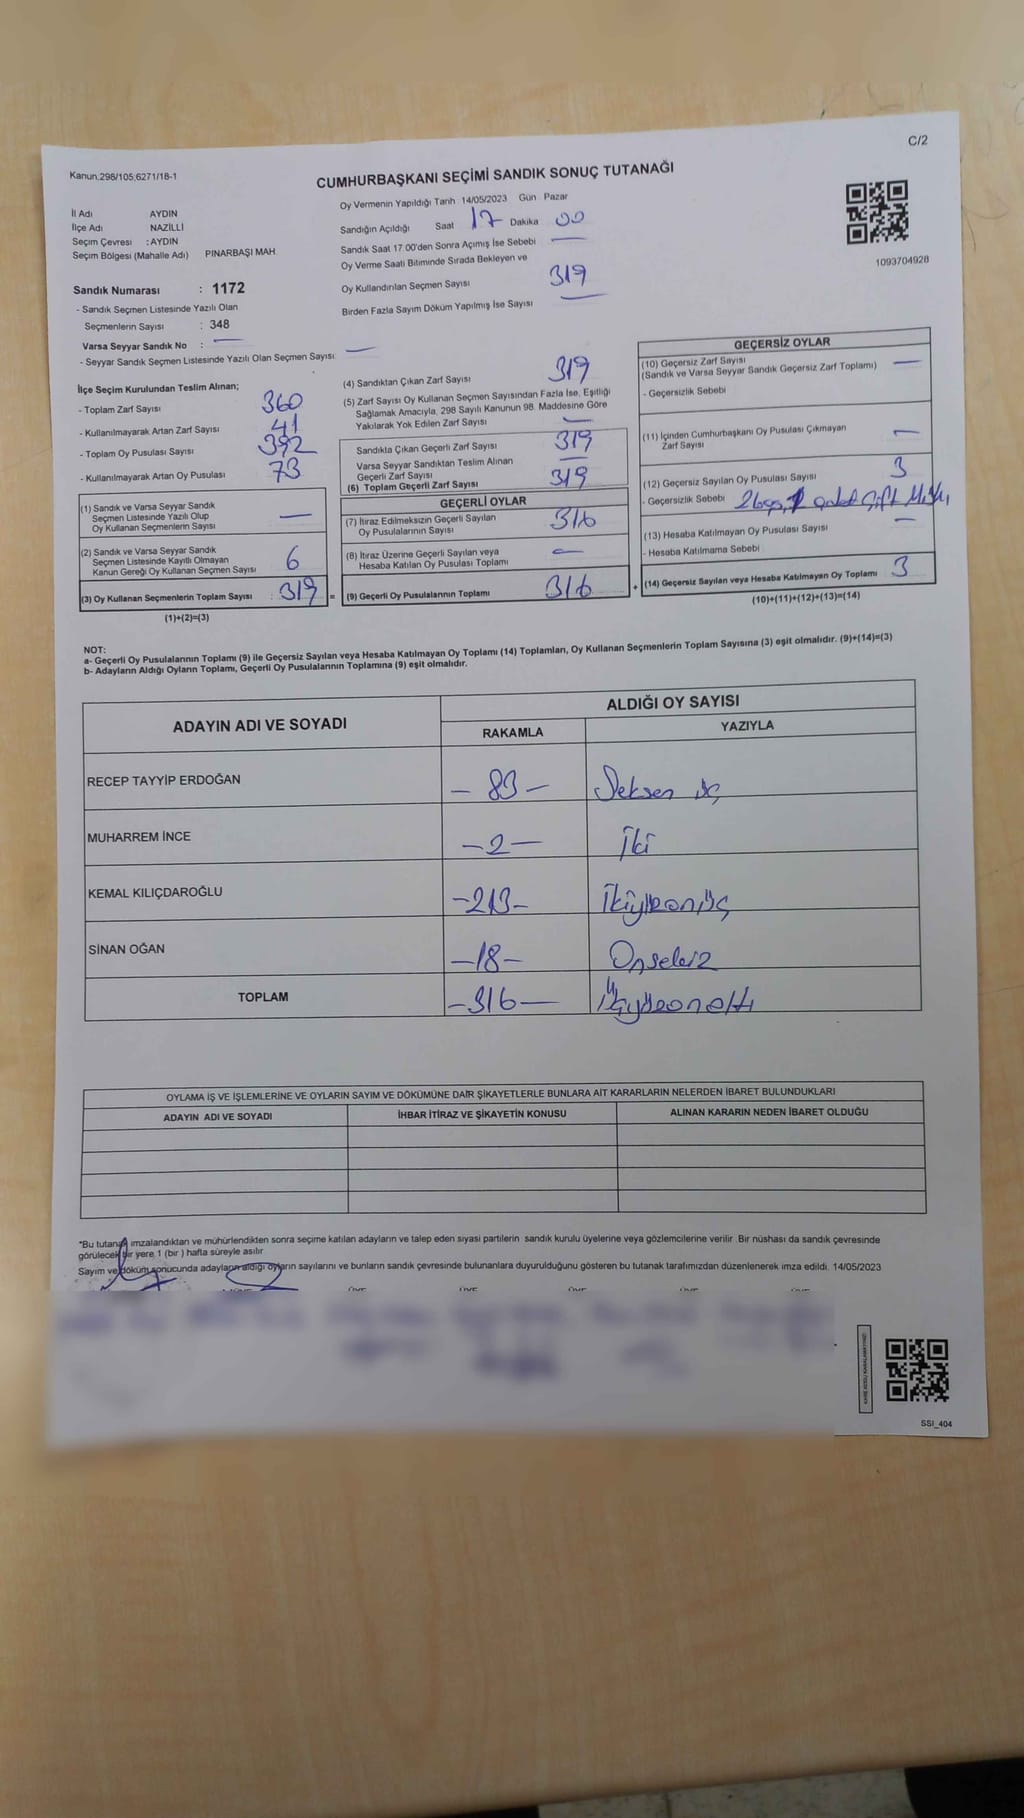 C/2
Kanun.298/105,6271/18-1
CUMHURBAŞKANI SEÇİMİ SANDIK SONUÇ TUTANAĞI
İl Adı AYDIN
İlçe Adı NAZİLLİ
Seçim Çevresi : AYDIN
Seçim Bölgesi (Mahalle Adı) PINARBAŞI MAH
Sandık Numarası : 1172
- Sandık Seçmen Listesinde Yazılı Olan
Seçmenlerin Sayısı : 348
Varsa Seyyar Sandık No : —
- Seyyar Sandık Seçmen Listesinde Yazılı Olan Seçmen Sayısı: —
Oy Vermenin Yapıldığı Tarih 14/05/2023 Gün Pazar
Sandığın Açıldığı Saat 17 Dakika 00
Sandık Saat 17 00'den Sonra Açımış İse Sebebi —
Oy Verme Saati Bitiminde Sırada Bekleyen ve
Oy Kullandırılan Seçmen Sayısı 319
Birden Fazla Sayım Döküm Yapılmış İse Sayısı —
1093704928
İlçe Seçim Kurulundan Teslim Alınan;
- Toplam Zarf Sayısı 360
- Kullanılmayarak Artan Zarf Sayısı 41
- Toplam Oy Pusulası Sayısı 392
- Kullanılmayarak Artan Oy Pusulası 73
(1) Sandık ve Varsa Seyyar Sandık
Seçmen Listesinde Yazılı Olup
Oy Kullanan Seçmenlerin Sayısı —
(2) Sandık ve Varsa Seyyar Sandık
Seçmen Listesinde Kayıtlı Olmayan
Kanun Gereği Oy Kullanan Seçmen Sayısı 6
(3) Oy Kullanan Seçmenlerin Toplam Sayısı : 319 =
(1)+(2)=(3)
(4) Sandıktan Çıkan Zarf Sayısı 319
(5) Zarf Sayısı Oy Kullanan Seçmen Sayısından Fazla İse, Eşitliği
Sağlamak Amacıyla, 298 Sayılı Kanunun 98. Maddesine Göre
Yakılarak Yok Edilen Zarf Sayısı —
Sandıkta Çıkan Geçerli Zarf Sayısı 319
Varsa Seyyar Sandıktan Teslim Alınan
Geçerli Zarf Sayısı —
(6) Toplam Geçerli Zarf Sayısı 319
GEÇERLİ OYLAR
(7) İtiraz Edilmeksizin Geçerli Sayılan
Oy Pusulalarının Sayısı 316
(8) İtiraz Üzerine Geçerli Sayılan veya
Hesaba Katılan Oy Pusulası Toplamı —
(9) Geçerli Oy Pusulalarının Toplamı 316 +
GEÇERSİZ OYLAR
(10) Geçersiz Zarf Sayısı
(Sandık ve Varsa Seyyar Sandık Geçersiz Zarf Toplamı) —
- Geçersizlik Sebebi
(11) İçinden Cumhurbaşkanı Oy Pusulası Çıkmayan
Zarf Sayısı —
(12) Geçersiz Sayılan Oy Pusulası Sayısı 3
- Geçersizlik Sebebi 2 boş, 1 adet Çift
(13) Hesaba Katılmayan Oy Pusulası Sayısı —
- Hesaba Katılmama Sebebi
(14) Geçersiz Sayılan veya Hesaba Katılmayan Oy Toplamı 3
(10)+(11)+(12)+(13)=(14)
NOT:
a- Geçerli Oy Pusulalarının Toplamı (9) ile Geçersiz Sayılan veya Hesaba Katılmayan Oy Toplamı (14) Toplamları, Oy Kullanan Seçmenlerin Toplam Sayısına (3) eşit olmalıdır. (9)+(14)=(3)
b- Adayların Aldığı Oyların Toplamı, Geçerli Oy Pusulalarının Toplamına (9) eşit olmalıdır.
ADAYIN ADI VE SOYADI ALDIĞI OY SAYISI
RAKAMLA YAZIYLA
RECEP TAYYİP ERDOĞAN -83- Seksen üç
MUHARREM İNCE -2- İki
KEMAL KILIÇDAROĞLU -213- İkiyüzonüç
SİNAN OĞAN -18- Onsekiz
TOPLAM -316- Üçyüzonaltı
OYLAMA İŞ VE İŞLEMLERİNE VE OYLARIN SAYIM VE DÖKÜMÜNE DAİR ŞİKAYETLERLE BUNLARA AİT KARARLARIN NELERDEN İBARET BULUNDUKLARI
ADAYIN ADI VE SOYADI İHBAR İTİRAZ VE ŞİKAYETİN KONUSU ALINAN KARARIN NEDEN İBARET OLDUĞU
*Bu tutanak imzalandıktan ve mühürlendikten sonra seçime katılan adayların ve talep eden siyasi partilerin sandık kurulu üyelerine veya gözlemcilerine verilir. Bir nüshası da sandık çevresinde
görülecek bir yere 1 (bir ) hafta süreyle asılır
Sayım ve döküm sonucunda adayların aldığı oyların sayılarını ve bunların sandık çevresinde bulunanlara duyurulduğunu gösteren bu tutanak tarafımızdan düzenlenerek imza edildi. 14/05/2023
SSI_404